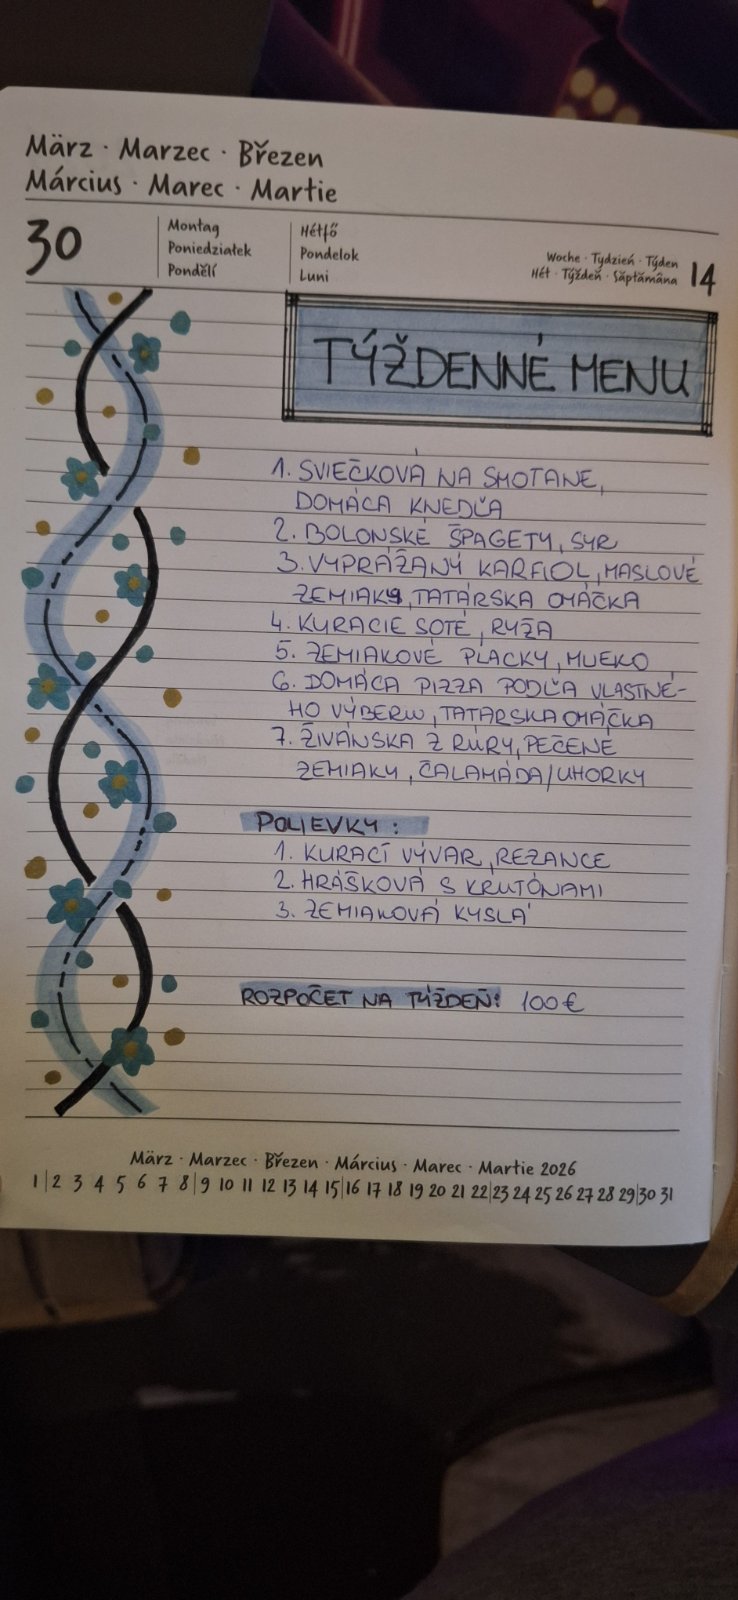 März · Marzec · Březen
Március · Marec · Martie
30
Montag
Poniedziałek
Pondělí
Hétfő
Pondelok
Luni
Woche · Tydzień · Týden
Hét · Týždeň · Săptămâna
14
TÝŽDENNÉ MENU
1. SVIEČKOVÁ NA SMOTANE,
DOMÁCA KNEDĽA
2. BOLONSKÉ ŠPAGETY, SYR
3. VYPRÁŽANÝ KARFIOL, MASLOVÉ
ZEMIAKY, TATÁRSKA OMÁČKA
4. KURACIE SOTÉ, RYŽA
5. ZEMIAKOVÉ PLACKY, MLIEKO
6. DOMÁCA PIZZA PODĽA VLASTNÉ-
HO VÝBERU, TATARSKA OMÁČKA
7. ŽIVÁNSKA Z RÚRY, PEČENÉ
ZEMIAKY, ČALAMÁDA/UHORKY
POLIEVKY:
1. KURACÍ VÝVAR, REZANCE
2. HRÁŠKOVÁ S KRUTÓNAMI
3. ZEMIAKOVÁ KYSLÁ
ROZPOČET NA TÝŽDEŇ: 100€
März · Marzec · Březen · Március · Marec · Martie 2026
1 | 2 3 4 5 6 7 8 | 9 10 11 12 13 14 15 | 16 17 18 19 20 21 22 | 23 24 25 26 27 28 29 | 30 31